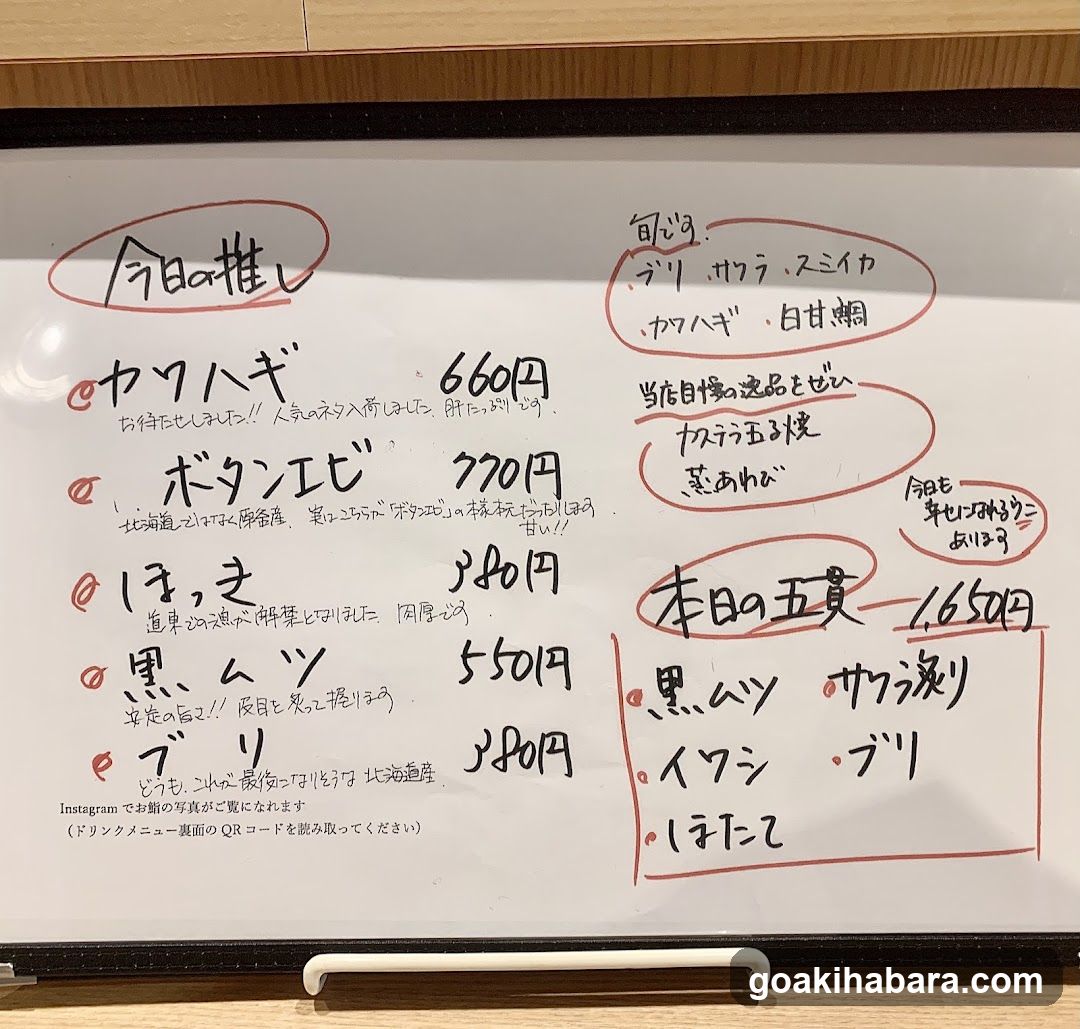 今日の推し
カワハギ 660円
お待たせしました!! 人気のネタ入荷しました、肝たっぷりです.
ボタンエビ 770円
北海道ではなく原産、実はこちらが「ボタンエビ」の本家本元だったりします
甘い!!
ほっき 380円
道東での漁が解禁となりました、肉厚です.
黒ムツ 550円
安定の旨さ!! 皮目を炙って握ります.
ブリ 380円
どうも、これが最後になりそうな 北海道産.
Instagramでお鮨の写真がご覧になれます
(ドリンクメニュー裏面のQRコードを読み取ってください)
旬です.
・ブリ ・サワラ ・スミイカ
・カワハギ ・白甘鯛
当店自慢の逸品をぜひ
カステラ玉子焼
蒸あわび
今日も
幸せになれるウニ
あります
本日の五貫 1,650円
黒ムツ サワラ炙り
イワシ ・ブリ
ほたて
goakihabara.com